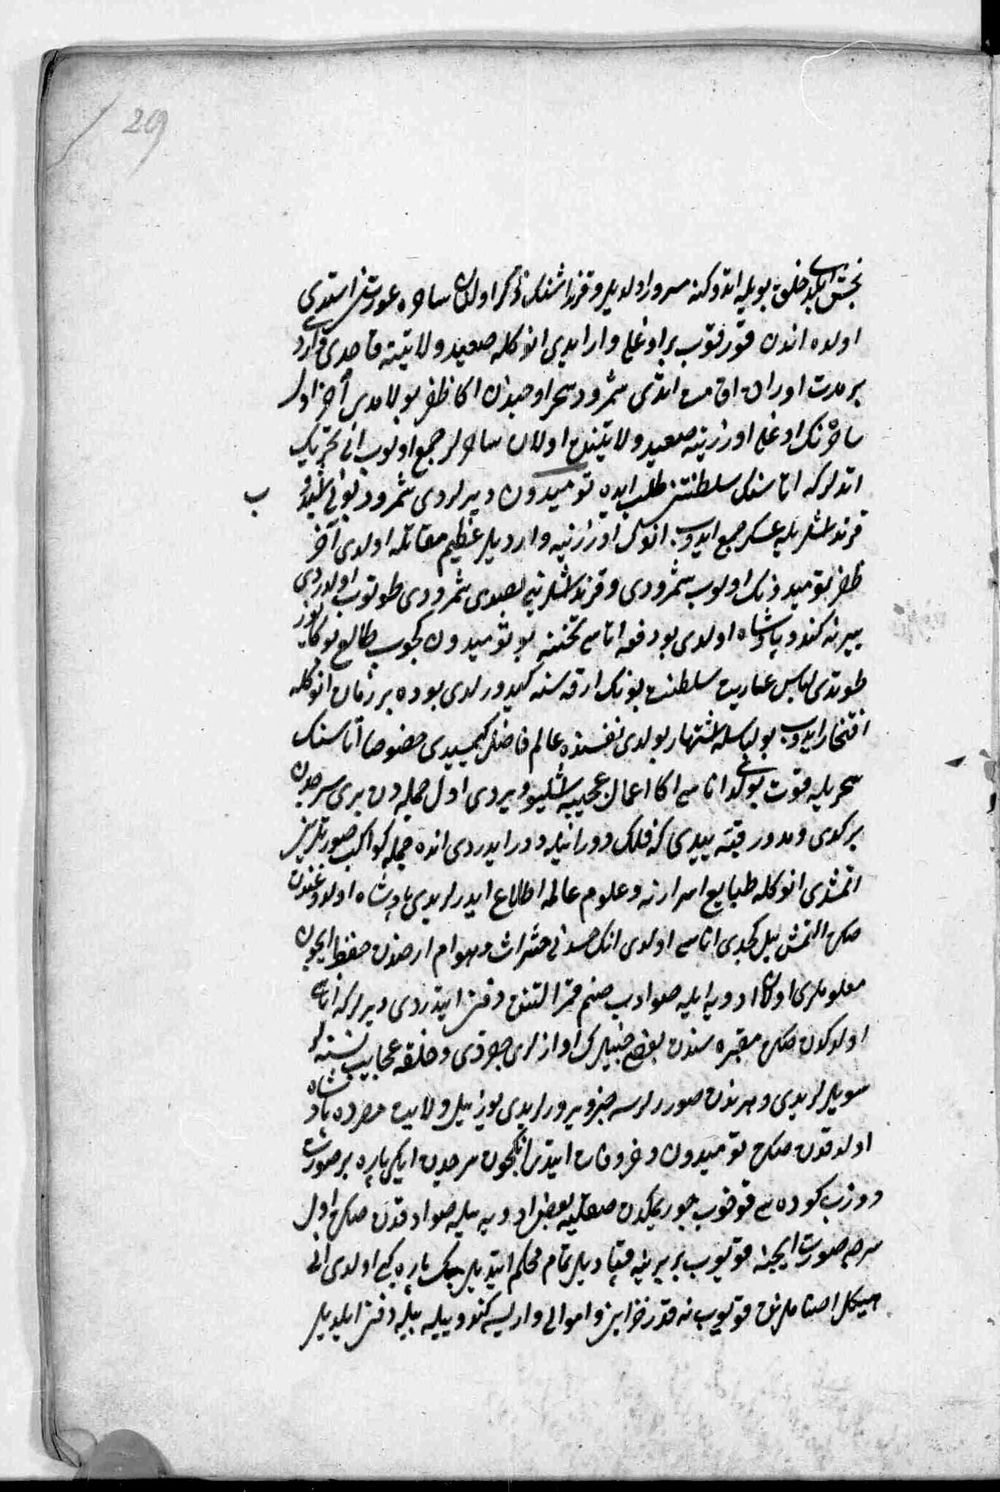 209
بخش ایلیدی خلق بویله اتدوکنه مسرور اولدیلر و قرنداشنک ذکر اولنان ساحره عورتنی استدی
اولده اندن قورقوب بر اوغلی وار ایدی انوکله صعید ولایتینه قاصدی واردی
بر مدت اوراده اقامت اتدی شمرود سحر اوجندن اکا ظفر بولامدی آخر اول
ساحره نک اوغلی اوزرینه صعید ولایتینده اولان ساحرلر جمع اولوب انی تحریک
اتدلر که اتاسنک سلطنتن طلب ایده تومیدون دیرلردی شمرود بونی
قرنداشلریله عسکر جمع ایدوب انوک اوزرینه واردیلر عظیم مقاتله اولدی آخر
ظفر تومیدونک اولوب شمرودی و قرنداشلرینی بصدی شمرودی طوتوب اولدردی
یرینه کندو پادشاه اولدی بو دفعه اتاسی تختنه بو تومیدون کچوب طالع بوکا یوز
طوتدی لباس عاریت سلطنت بونک ارقه سنه کیدورلدی بو ده بر زمان انوکله
افتخار ایدوب بو لباسله اشتهار بولدی نفسنده عالم فاضل کیمسیدی خصوصا اتاسنک
سحریله قوت بولدی اناسی اکا اعمال عجیبه اشلیو ویردی اول جمله دن بری سرچه دن
بر کدی و مدور قبه ییدی که فلک دورانیله دور ایدردی انده جمله کواکب صورتلرین
اتمشدی انوکله طبایع اسرارنه و علوم عالمه اطلاع ایدرلریدی پادشاه اولدوغندن
صکره التمش ییل کچدی اناسی اولدی انک جسدنی حشرات و هوام ارضدن حفظ ایچون
معلوملری اولان ادویه ایله صوادب صنم قمر التنده دفن ایتدردی دیرلر که اناسی
اولدکدن صکره مقبره سندن بعض جنیلرک اوازلری چقردی و خلقه عجایب نسنه لر
سویلرلریدی و هر نه دن صورلرسه خبر ویرورلریدی یوز ییل ولایت مصرده پادشاه
اولدقدن صکره تومیدون دخی وفات ایتدی انکچون سرچه دن ایکی پاره بر صورت
دوزب کوده سی قوخوب چوریمکدن صقلیه بعض ادویه ییله صوادقدن صکره اول
سرچه صورت ایچنه قویوب بر برینه قپادیلر تمام محکم ایتدیلر یک پاره کبی اولدی انی
هیکل اصناملرنده قویوب نه قدر خزاین و اموالی وار ایسه کندویله بیله دفن ایلدیلر